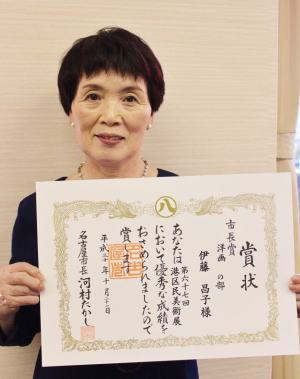 賞状
市長賞
洋画 の部
伊藤 昌子様
第六十七回
あなたは港区民美術展
において優秀な成績を
おさめられましたので
賞します
平成三十年十月二十一日
名古屋市長 河村たかし